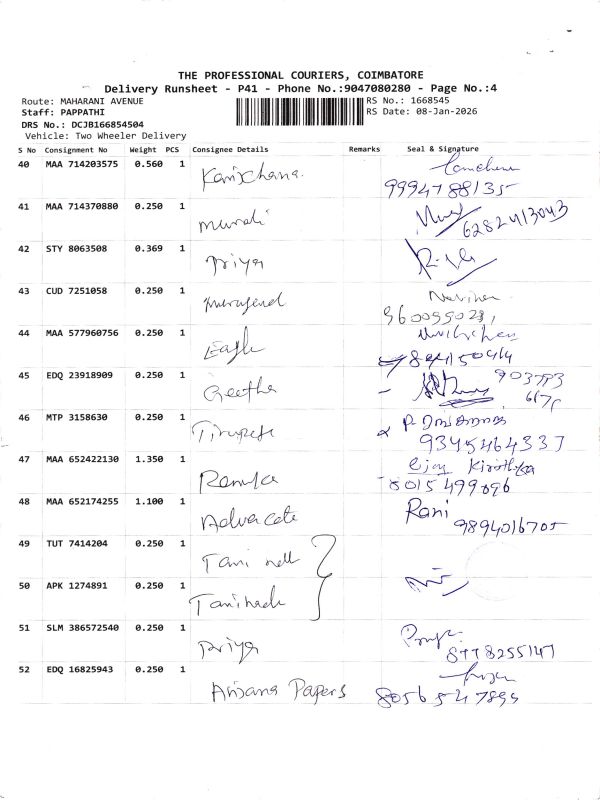 THE PROFESSIONAL COURIERS, COIMBATORE
Delivery Runsheet - P41 - Phone No.:9047080280 - Page No.:4
Route: MAHARANI AVENUE
RS No.: 1668545
Staff: PAPPATHI
RS Date: 08-Jan-2026
DRS No.: DCJB166854504
Vehicle: Two Wheeler Delivery
S No Consignment No Weight PCS Consignee Details Remarks Seal & Signature
40 MAA 714203575 0.560 1
9994788135
41 MAA 714370880 0.250 1 Murali
6282413043
42 STY 8063508 0.369 1 Priya
43 CUD 7251058 0.250 1
44 MAA 577960756 0.250 1 Eagle
45 EDQ 23918909 0.250 1 Geetha
46 MTP 3158630 0.250 1
9345464337
47 MAA 652422130 1.350 1 Renuka
8015499096
48 MAA 652174255 1.100 1 Advocate Rani
9894016705
49 TUT 7414204 0.250 1
50 APK 1274891 0.250 1
51 SLM 386572540 0.250 1 Priya
8778255147
52 EDQ 16825943 0.250 1 Papers